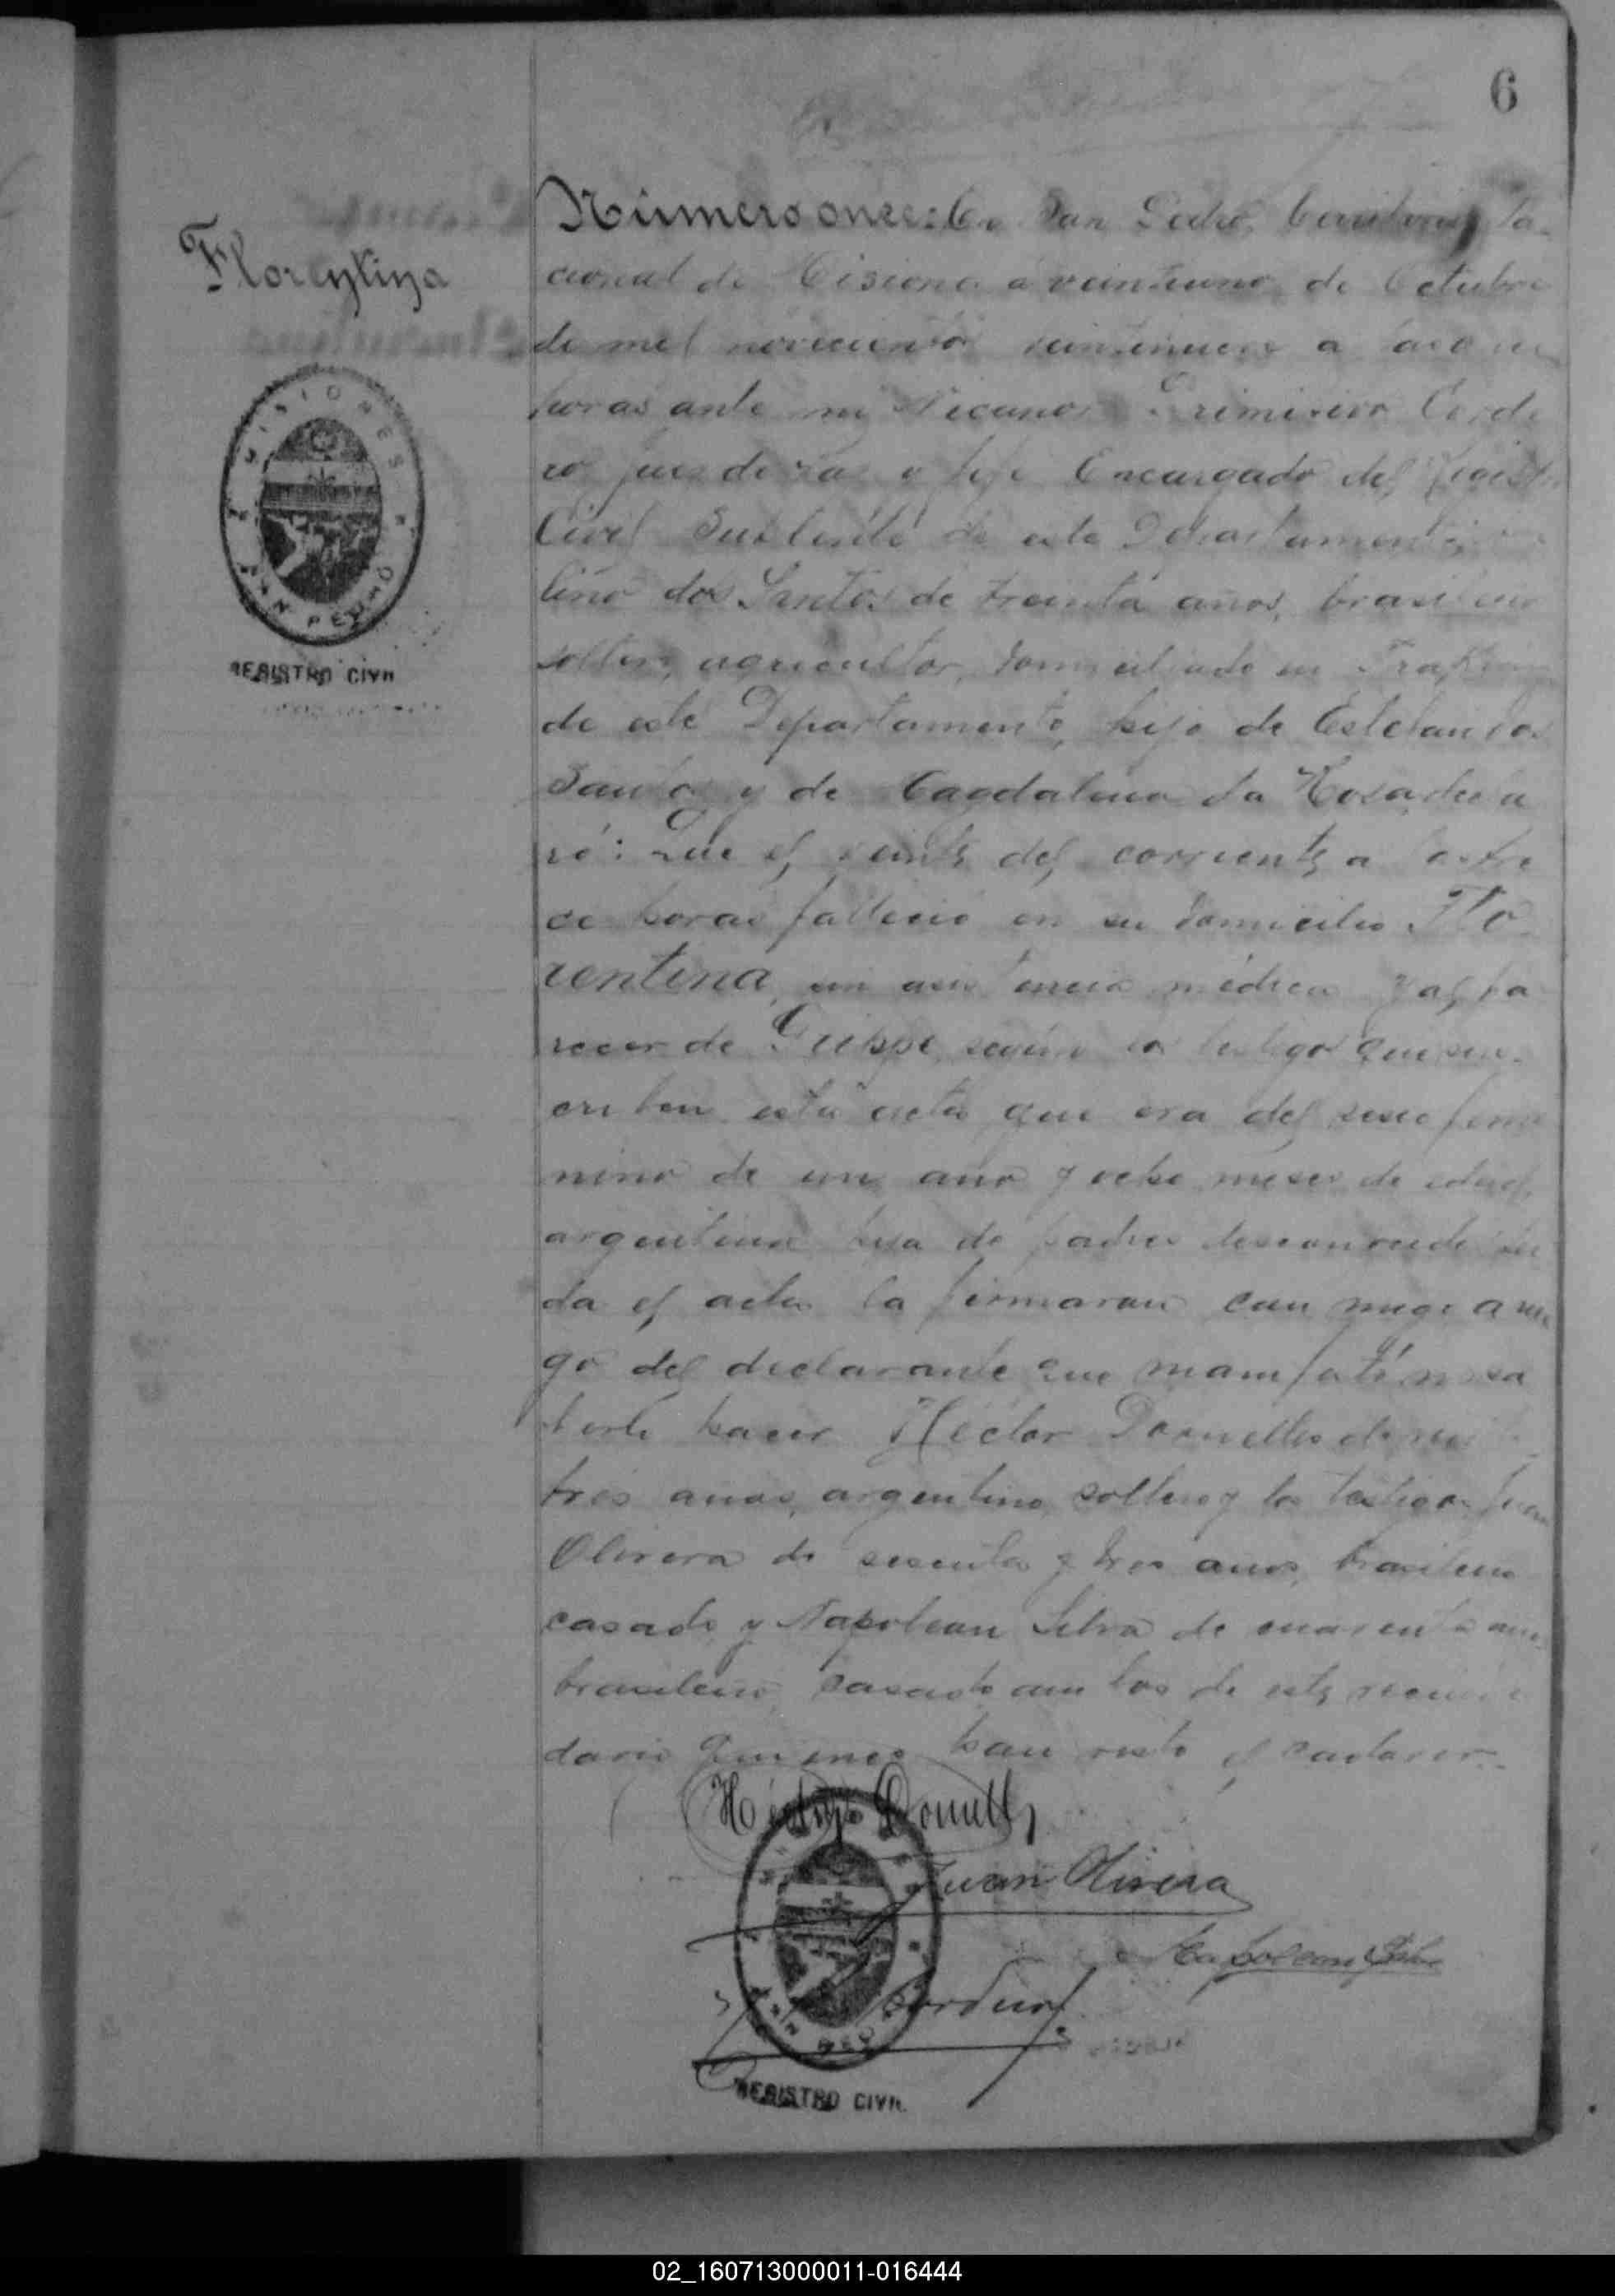 6
Florentina
MISIONES
SAN PEDRO
REGISTRO CIVIL
Número once: En San Pedro, Territorio Na-
cional de Misiones a veintiuno de Octubre
de mil novecientos veintinueve a las
horas ante mi Nicanor Primitivo Corde
ro Juez de Paz y Jefe Encargado del Registro
Civil de este Departamento,
lino dos Santos de treinta años, brasilero
soltero, agricultor, domiciliado en
de este Departamento, hijo de Esteban dos
Santos y de Magdalena da Rosa, decla
ró: Que el veinte del corriente a las tre
ce horas falleció en su domicilio Flo
rentina, sin asistencia médica y al pa
recer de Grippe, según los testigos que sus-
criben esta acta que era del sexo feme
nino de un año y ocho meses de edad,
argentina hija de padres desconocidos. Lei
da el acta la firmaron con migo a rue
go del declarante que manifestó no sa
berlo hacer Héctor Dornelles de
tres años, argentino, soltero y los testigos Juan
Olivera de sesenta y tres años, brasilero
casado y Napoleon Silva de cuarenta años
brasilero, casado ambos de este vecin
dario quienes han visto el cadaver.-
Juan Olivera
Napoleon Silva
Cordero
SAN PEDRO
REGISTRO CIVIL
02_160713000011-016444